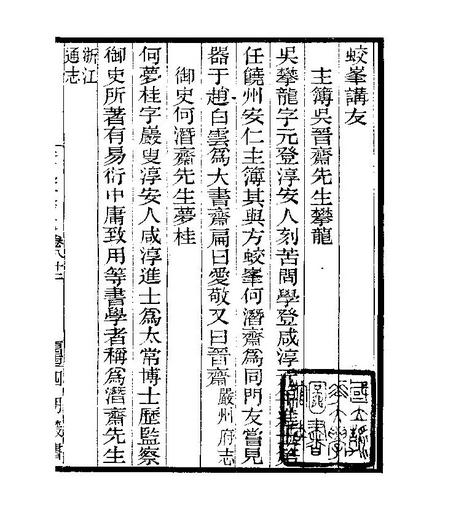 蛟峯講友
主簿吳晉齋先生攀龍
吳攀龍字元登淳安人刻苦問學登咸淳
任饒州安仁主簿其與方蛟峯何潛齋爲同門友嘗見
器于趙白雲爲大書齋扁曰愛敬又曰晉齋嚴州府志
御史何潛齋先生夢桂
何夢桂字巖叟淳安人咸淳進士爲太常博士歷監察
御史所著有易衍中庸致用等書學者稱爲潛齋先生
浙江
通志
卷八十二
四明叢書